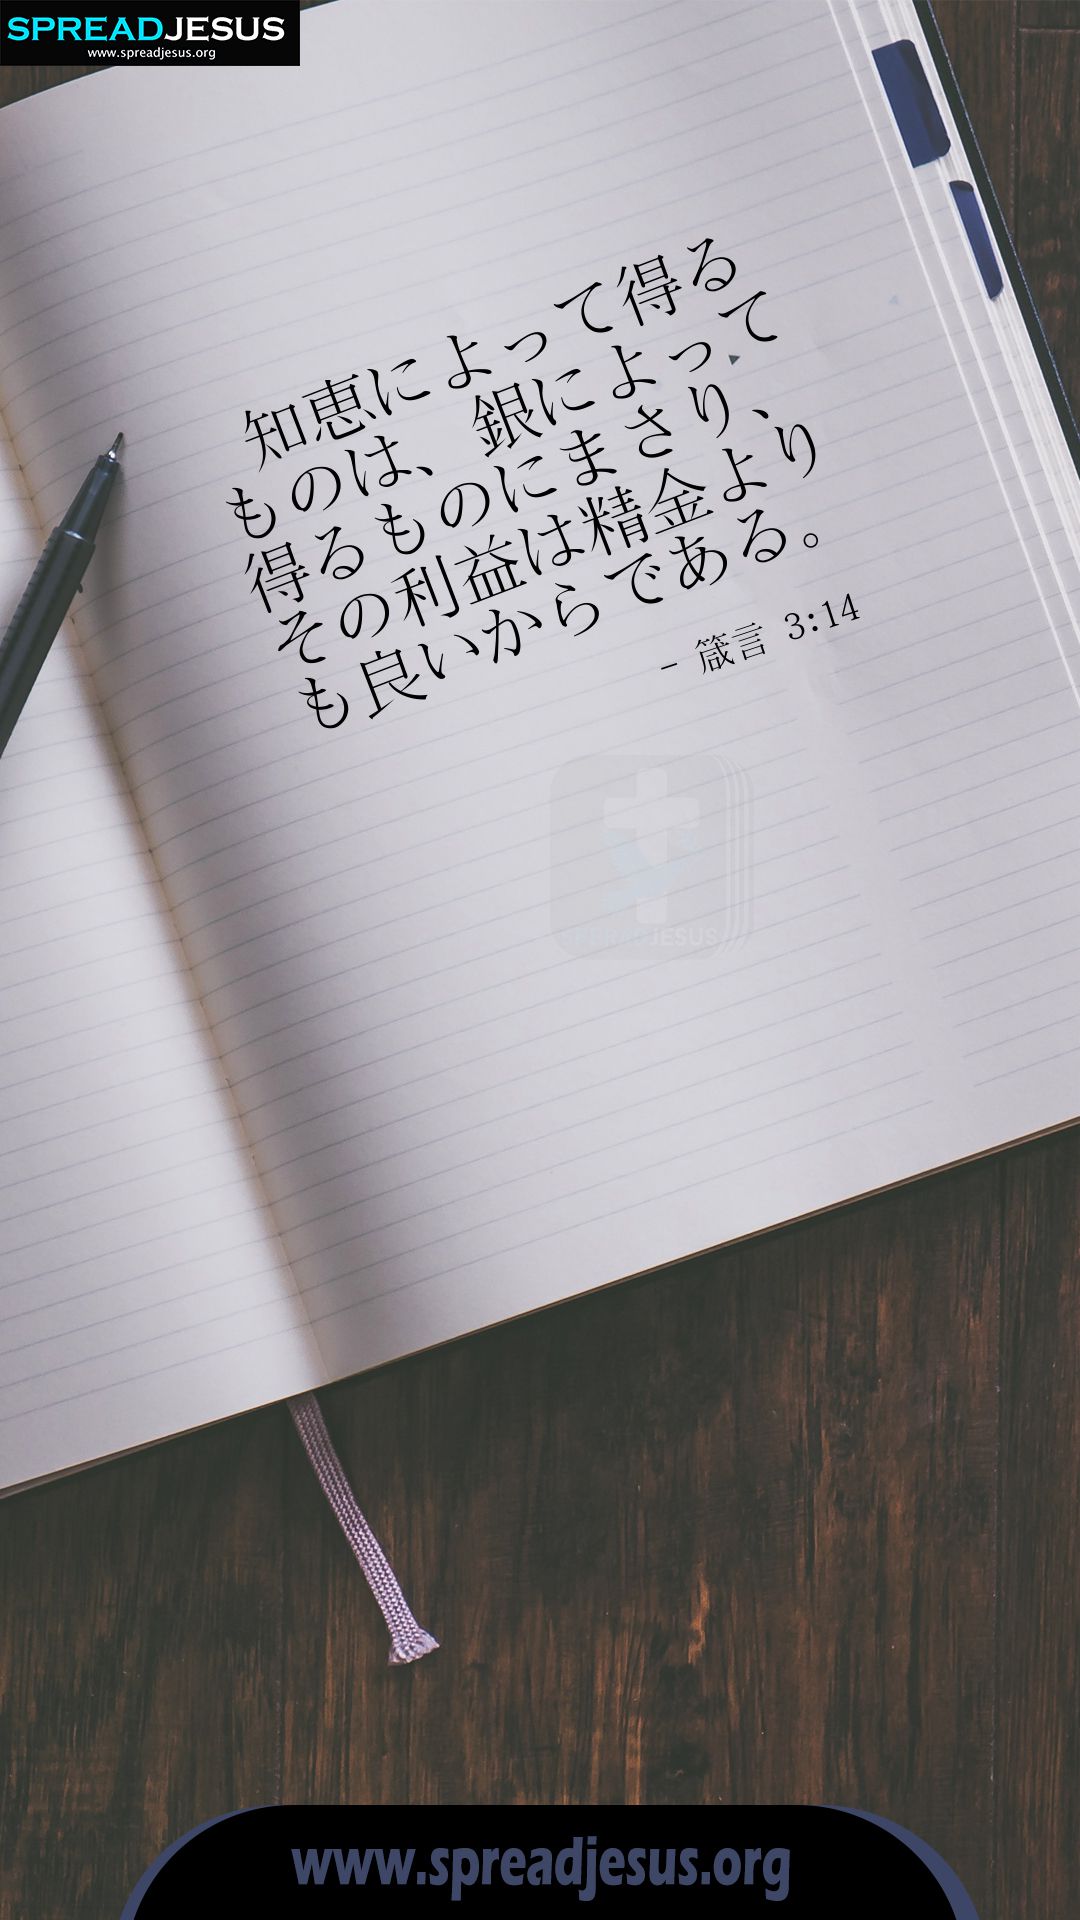 SPREADJESUS
www.spreadjesus.org
知恵によって得る
ものは、銀によって
得るものにまさり、
その利益は精金より
も良いからである。
– 箴言 3:14
SPREADJESUS
www.spreadjesus.org